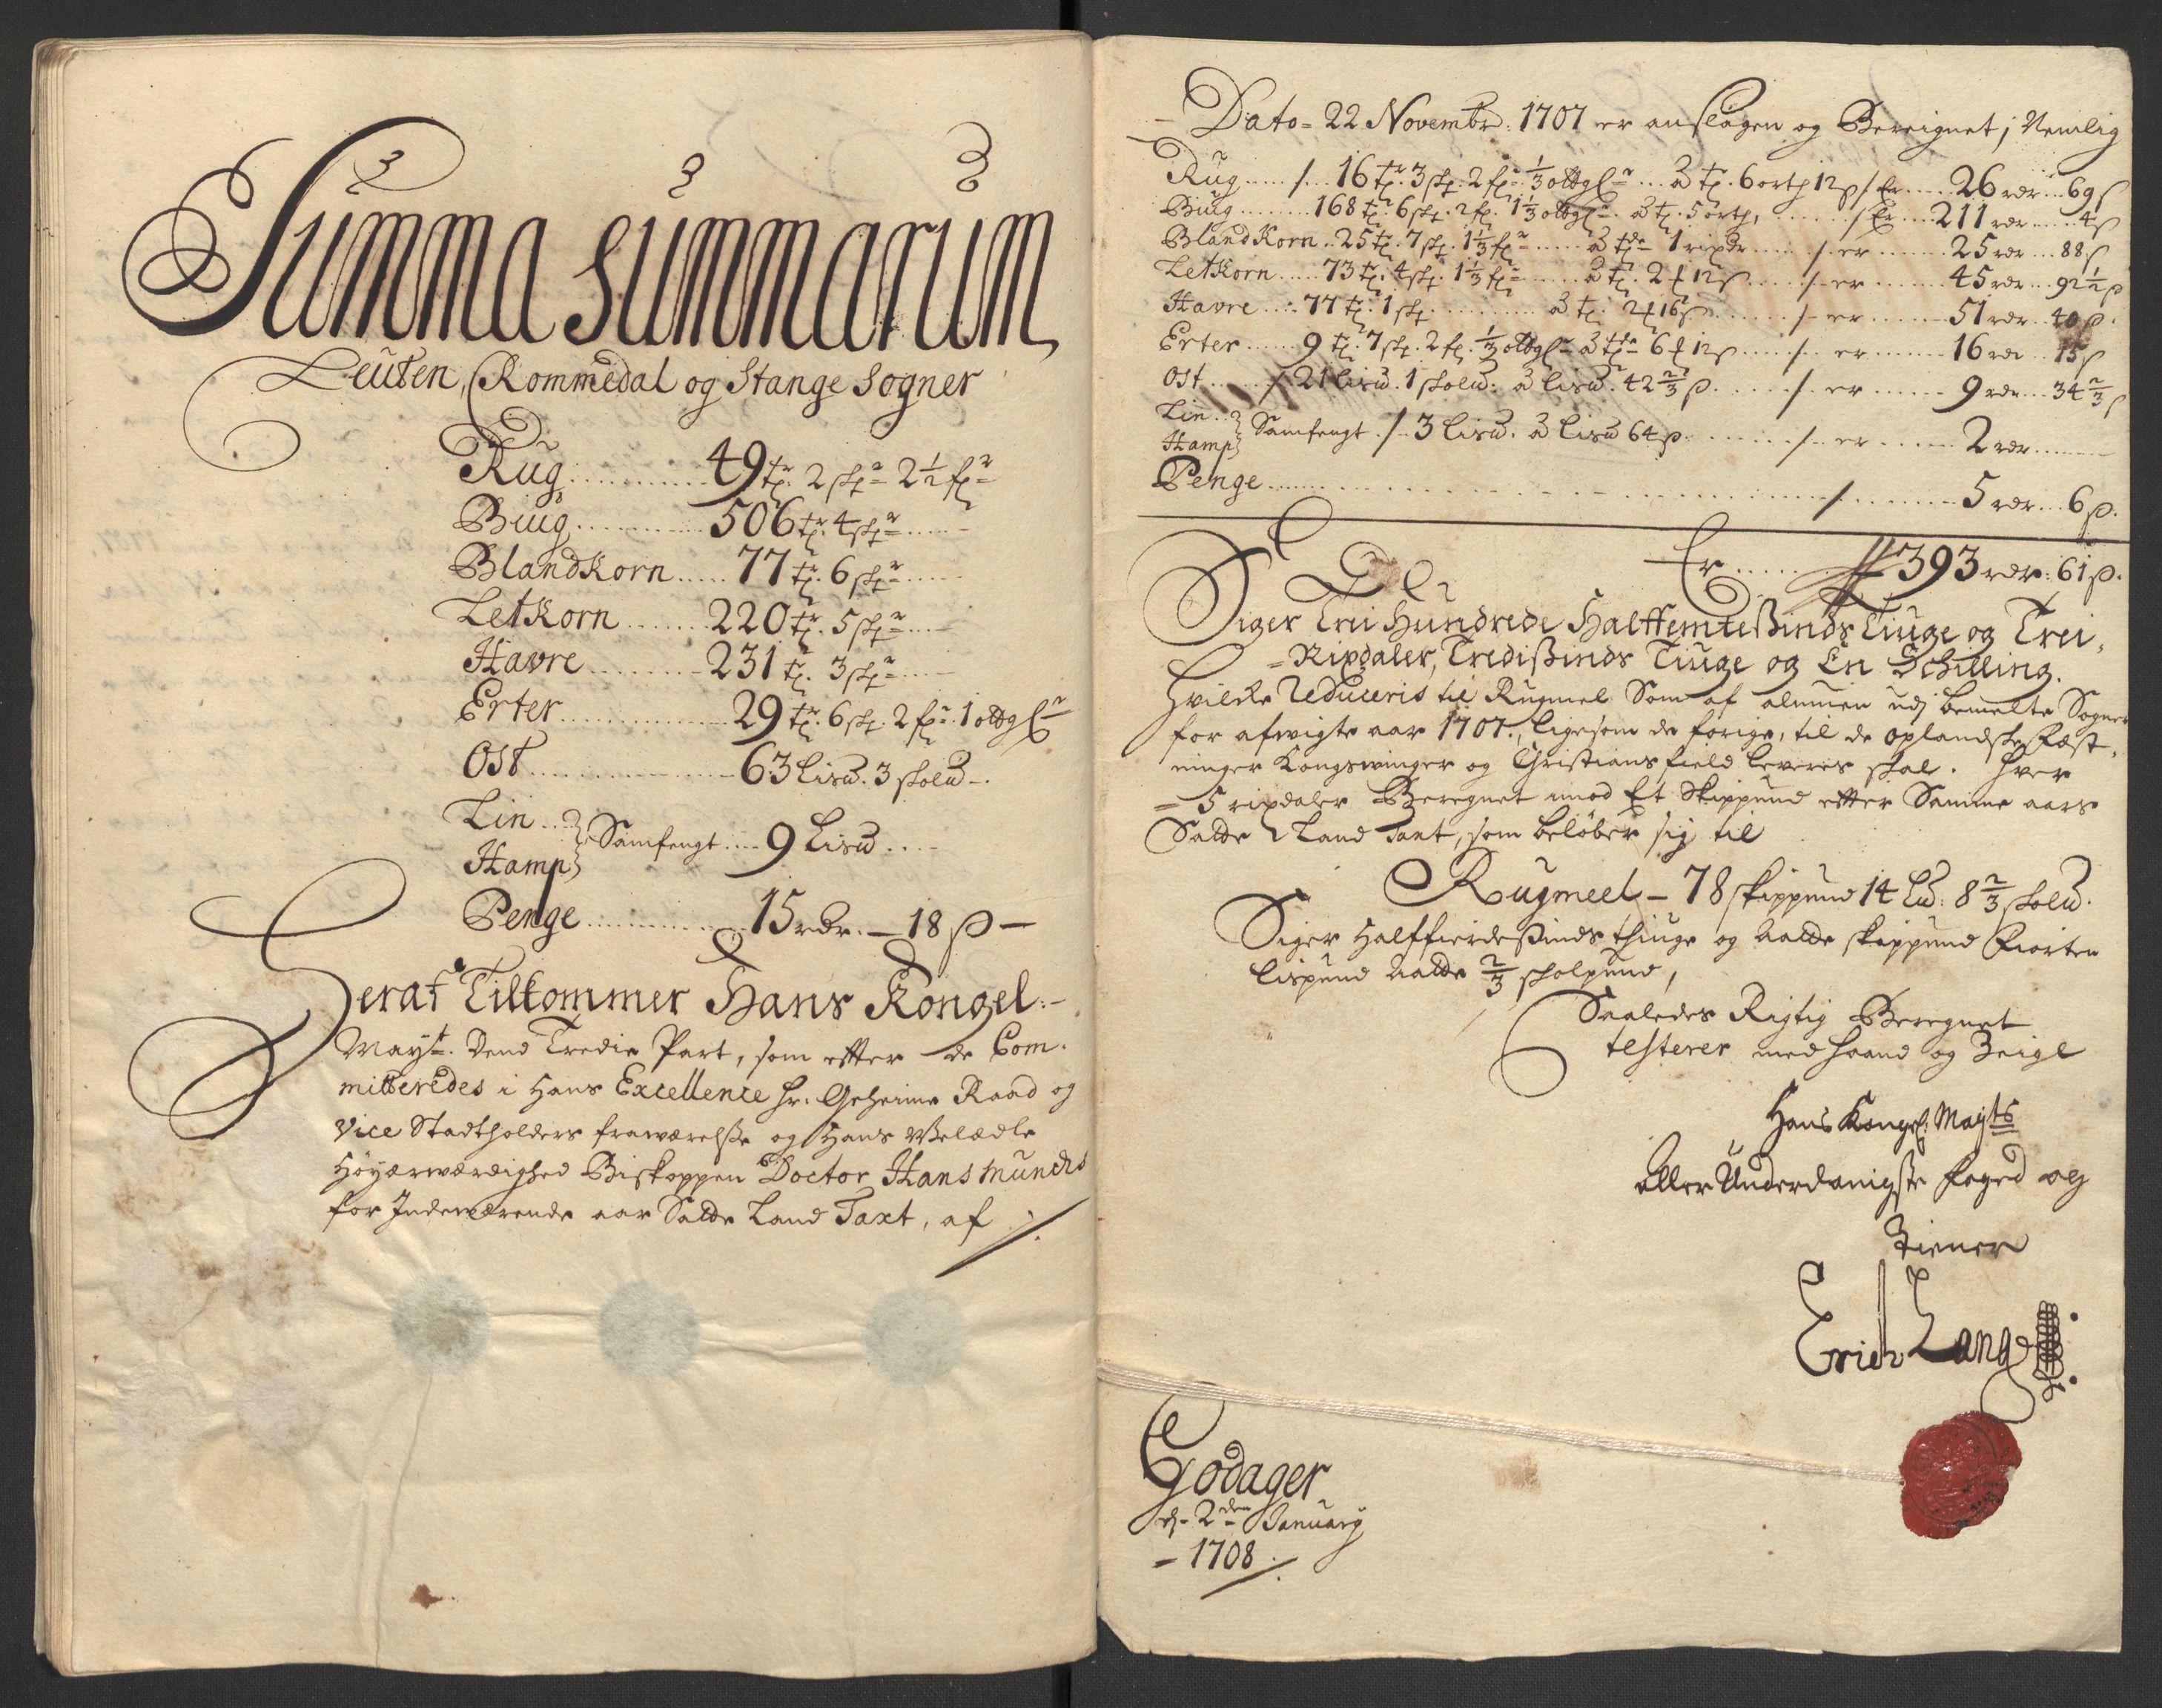 Summa Summarum
Leuten, Rommedal og Stange Sogner
Rug 49 tr: 2 skpr 2½ fr
Biug 506 tr: 4 skpr
Blandkorn 77 tr: 6 skpr
Letkorn 220 tr: 5 skpr
Havre 231 tr: 3 skpr
Erter 29 tr: 6 skp: 2 fr: 1 ottgl
Ost 63 Lisu: 3 skolu
Lin
Samfengt 9 Lisu
Hamp
Penge 15 rdr. – 18 ß –
Heraf Tilkommer Hans Kongel:
Mayt: Dend Tredie Part, som efter de Com-
mitteredes i Hans Excellence Hr. Geheime Raad og
Vice Stadtholders frawærelsse og Hans Welædle
Höyærwærdighed Biskoppen Doctor Hans Munchs
for Indewærende aar Satte Land Taxt, af
Dato 22 Novembr: 1707 er anslagen og Bereignet; Nemlig
Rug 16 tr: 3 skp: 2 fr: ⅓ ottgl à tr: 6 ort 12 ß / Er 26 rdr 69 ß
Biug 168 tr: 6 skp: 2 fr: 1⅓ ottgl à tr: 5 ort, / Er 211 rdr 4 ß
Blandkorn 25 tr: 7 skp: 1⅓ fr à tde 1 rixdr / er 25 rdr 88 ß
Letkorn 73 tr: 4 skp: 1⅓ fr à tr: 2 ƒ 12 ß / er 45 rdr 92½ ß
Havre 77 tr: 1 skp à tr: 2 ƒ 16 ß / er 51 rdr 40 ß.
Erter 9 tr: 7 skp: 2 fr: ⅓ ottgl à tde 6 ƒ 12 ß / er 16 rdr 15 ß
Ost / 21 Lisu: 1 skolu: à Lisu: 42⅔ ß / er 9 rdr 34⅔ ß
Lin
Samfengt / 3 Lisu: à Lisu 64 ß / er 2 rdr
Hamp
Penge / 5 rdr 6 ß.
Er 393 rdr: 61 ß.
Siger Trei Hundrede Halffemtesinds Tiuge og Trei
Rixdaler, Tredisinds Tiuge og En Schilling.
Hvilke Reduceris til Rugmel Som af almuen udj bemelte Sogner
for afwigte aar 1707, ligesom de forige, til de oplandske Fæst-
ninger Kongswinger og Christiansfield leveres skal. Hver
5 rixdaler Beregnet imod Et Skippund efter Samme aars
Satte Land Taxt, som beløber sig til
Rugmeel – 78 skippund 14 Lu: 8⅔ skolu.
Siger Halffierdesinds thiuge og Aatte skippund Fiorten
Lispund Aatte ⅔ skolpund,
Saaledes Rigtig Beregnet
testerer med Haand og Zeigl
Hans Kongl: Mayts
Aller Underdanigste Foged og
Tiener
Erich Lang
Godager
d. 2den January
1708